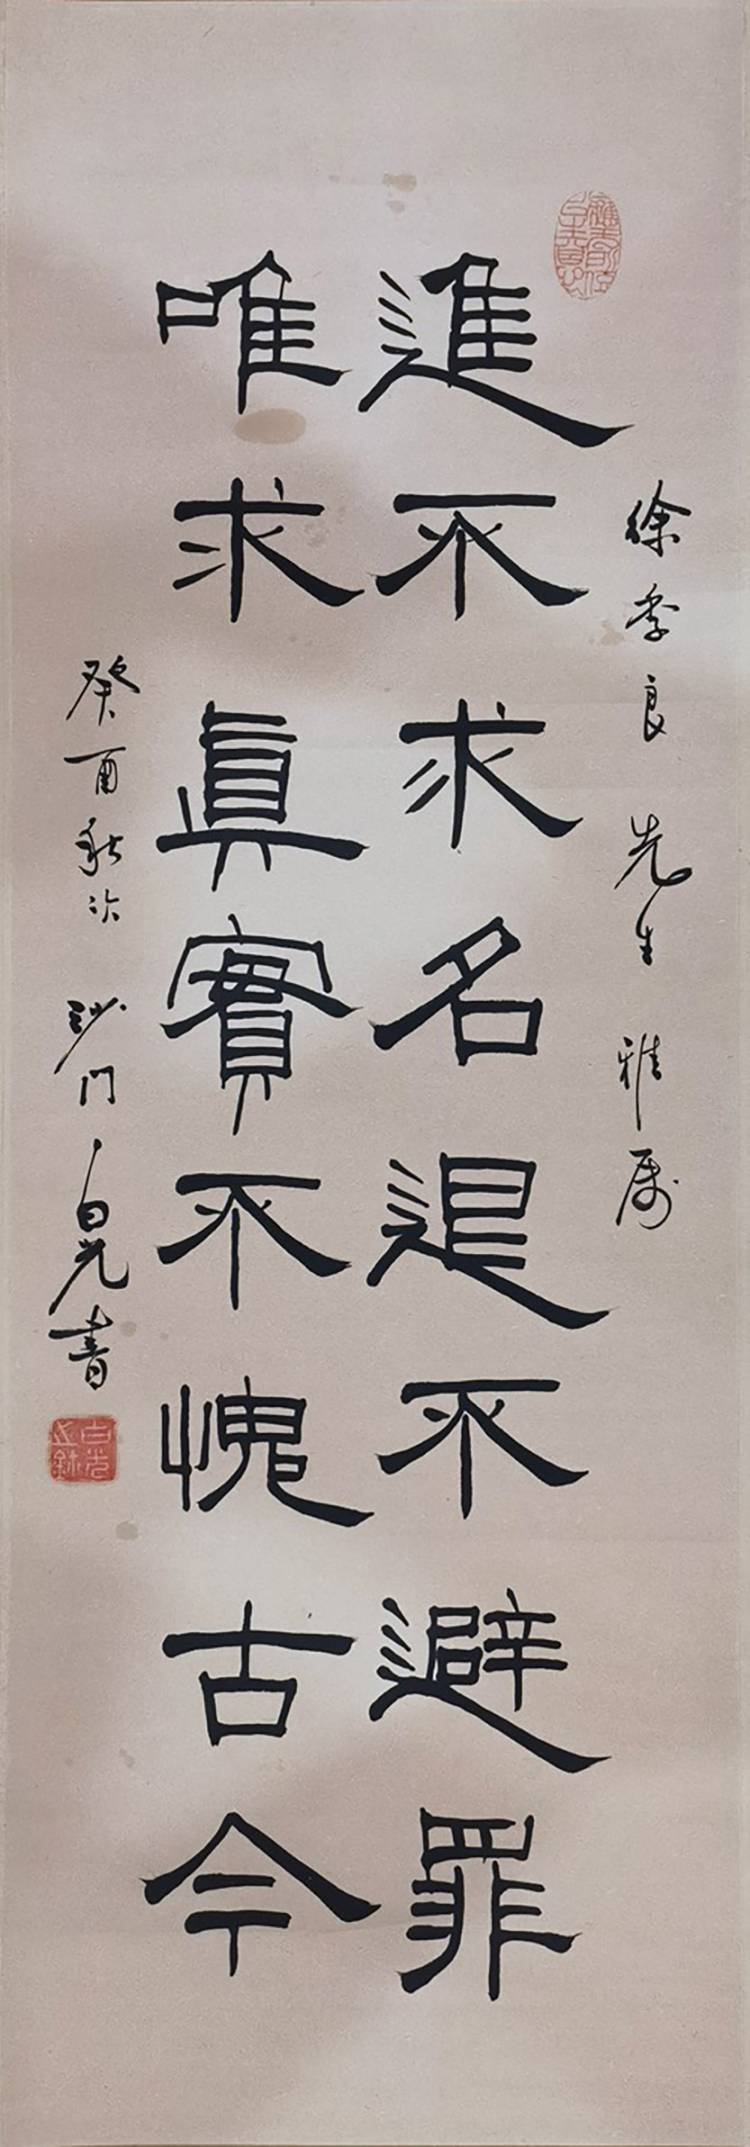 徐季良先生雅属
進不求名退不避罪
唯求真實不愧古今
癸酉秋次沙門白光書